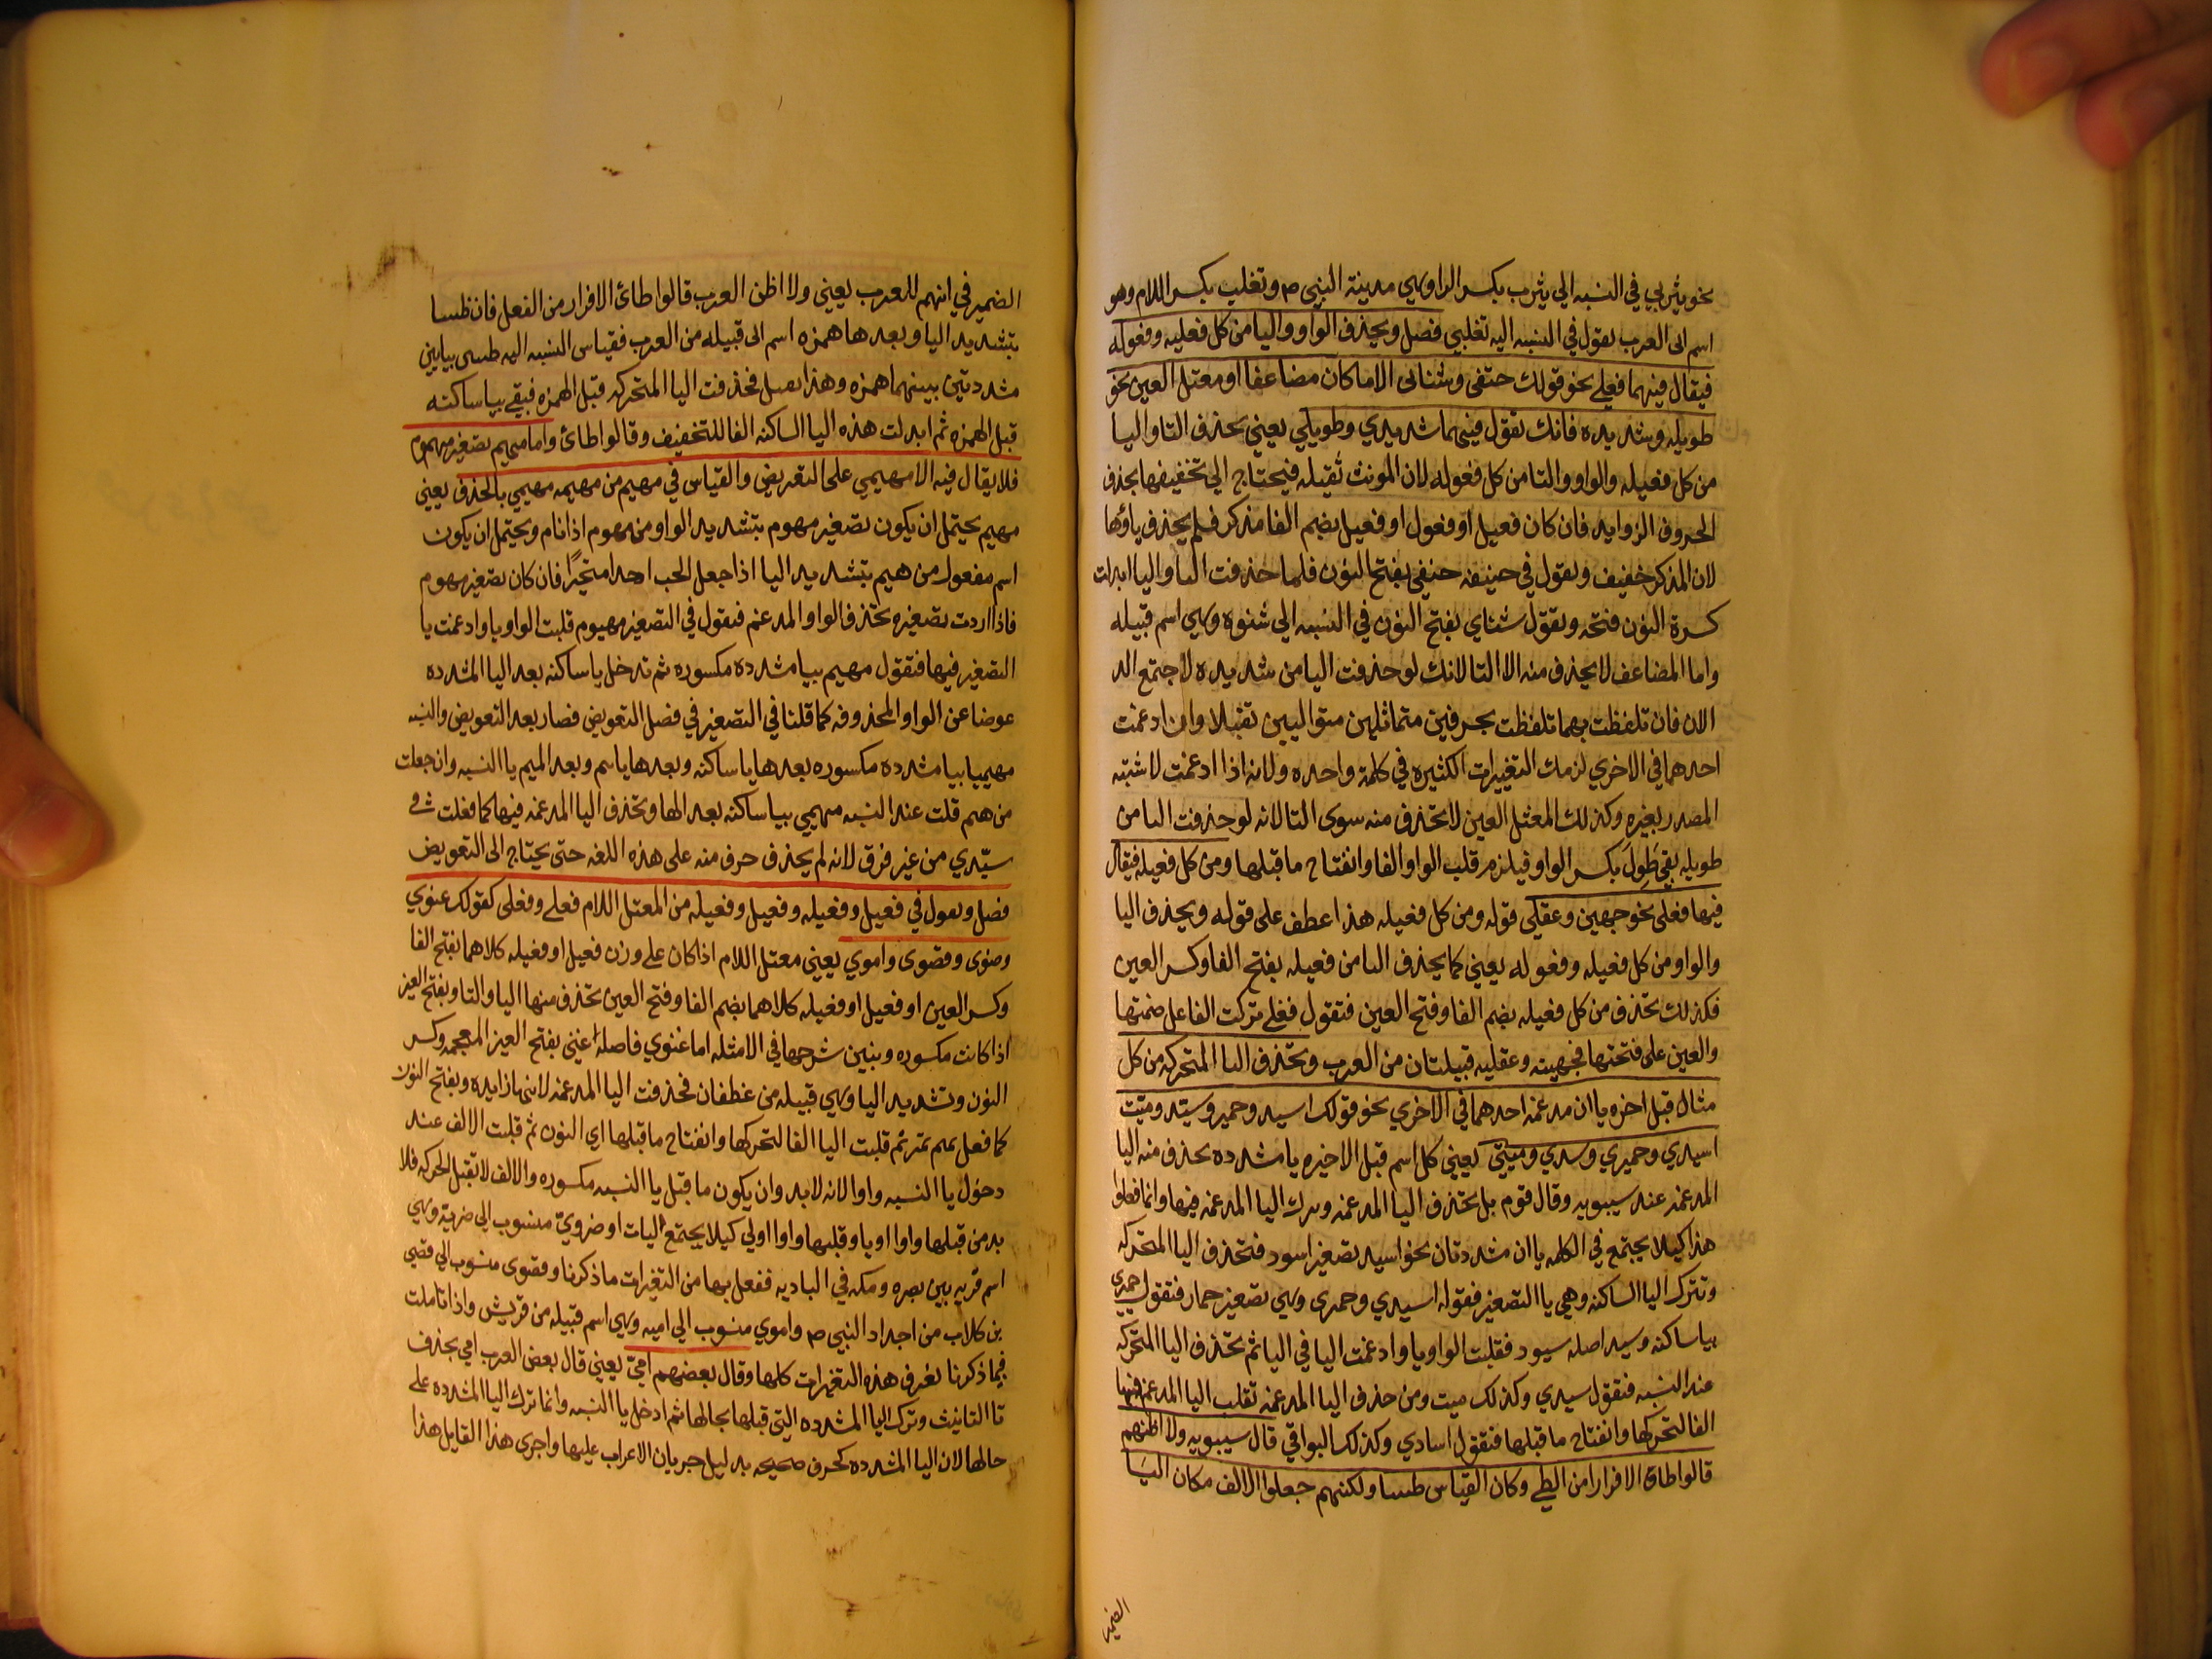 نحو يثربي في النسبه الي يثرب بكسر الراوهي مدينة النبي ص وتغلب بكسر اللام وهو
اسم الى العرب تقول في النسبه اليه تغلبي فصل ويحذف الواو واليا من كل فعليه وفعوله
فيقال فيهما فعلي نحو قولك حنفى وشنائى الا ما كان مضاعفا او معتل العين نحو
طويله وشديده فانك تقول فيهما شديدي وطويلي يعني تحذف التا واليا
من كل فعيله والواو والتا من كل فعوله لان المونث ثقيله فيحتاج الي تخفيفها بحذف
الحروف الزوايد فان كان فعيل او فعول او فعيل بضم الفا مذكر فلم يحذف ياؤها
لان المذكر خفيف وتقول في حنيفه حنفى بفتح النون فلما حذفت التا واليا ابدلت
كسرة النون فتحه وتقول شناي بفتح النون في النسبه الي شنوه وهي اسم قبيله
واما المضاعف لا يحذف منه الا التا لانك لو حذفت اليا من شديده لاجتمع الد
الان فان تلفظت بهما تلفظت بحرفين متماثلين متواليين ثقيلا وان ادغمت
احدهما في الاخري لزمك التغييرات الكثيره في كلمة واحده ولانه اذا ادغمت لاشتبه
المصدر بغيره وكذلك المعتل العين لا تحذف منه سوى التا لانه لو حذفت اليا من
طويله بقي طَوِلَ بكسر الواو فيلزم قلب الواو الفا وانفتاح ما قبلها ومن كل فعيله فيقال
فيها فعلى نحو جهين وعقلي قوله ومن كل فعيله هذا عطف على قوله ويحذف اليا
والواو من كل فعيله وفعوله يعني كما يحذف اليا من فعيله بفتح الفا وكسر العين
فكذلك تحذف من كل فعيله بضم الفا وفتح العين فتقول فعلي تركت الفا على ضمتها
والعين على فتحتها فجهينه وعقليه قبيلتان من العرب وتحذف اليا المتحركه من كل
مثال قبل اخره يا ان مدغمه احدهما في الاخري نحو قولك اسيد وحمير وسيد وميت
اسيدي وحميري وسيدي وميتي يعني كل اسم قبل الاخيره يا مشدده تحذف منه اليا
المدغمه عند سيبويه وقال قوم بل تحذف اليا المدغمه وترك اليا المدغمه فيها وانما فعلوا
هذا كيلا يجتمع في الكلمه يا ان مشددتان نحو اسيد تصغير اسود فتحذف اليا المتحركه
وتترك اليا الساكنه وهي يا التصغير فقوله اسيدي وحمرى وهي تصغير حمار فتقول حمرى
بيا ساكنه وسيد اصله سيود فقلبت الواو يا وادغمت اليا في اليا ثم تحذف اليا المتحركه
عند النسبه فتقول سيدي وكذلك ميت ومن حذف اليا المدغمه تقلب اليا المدغم فيها
الفا لتحركها وانفتاح ما قبلها فتقول اسادي وكذلك البواقي قال سيبويه ولا اظنهم
قالوا طائ الا فرارا من الطي وكان القياس طسا ولكنهم جعلوا الالف مكان اليا
الضمير
الضمير في انهم للعرب يعني ولا اظن العرب قالوا طائ الا فرار من الفعل فان طسا
بتشديد اليا وبعدها همزه اسم الى قبيله من العرب فقياس النسبه اليه طسى بيايين
مشددتين بينهما همزه وهذا فحذفت اليا المتحركه قبل الهمزه فبقي بيا ساكنه
قبل الهمزه ثم ابدلت هذه اليا الساكنه الفا للتخفيف وقالوا طائ واما مهيم تصغير مهموم
فلا يقال فيه الا مهيمي على التعريض والقياس في مهيم من مهيمه مهيمي بالحذف يعني
مهيم يحتمل ان يكون تصغير مهوم بتشديد الواو من مهوم اذا نام ويحتمل ان يكون
اسم مفعول من هيم بتشديد اليا اذا جعل الحب احدا متحيّرًا فان كان تصغير مهوم
فاذا اردت تصغيره تحذف الواو المدغم فتقول في التصغير مهيوم قلبت الواو يا وادغمت يا
التصغير فيها فتقول مهيم بيا مشدده مكسوره ثم تدخل يا ساكنه بعد اليا المشدده
عوضا عن الواو المحذوفه كما قلنا في التصغير في فصل التعويض فصار بعد التعويض والنسبه
مهيميا بيا مشدده مكسوره بعدها يا ساكنه وبعدها يا سم وبعد الميم يا النسبه وان جعلت
من هيم قلت عند النسبه مهيمي بيا ساكنه بعد الها وتحذف اليا المدغمه فيها كما فعلت في
سيّدي من غير فرق لانه لم يحذف حرف منه على هذه اللغه حتى يحتاج الى التعويض
فصل وتقول في فعيل وفعيله وفعيل وفعيله من المعتل اللام فعلي وفعلى كقولك غنوي
وضوى وقصوى واموي يعني معتل اللام اذا كان علي وزن فعيل او فعيله كلاهما بفتح الفا
وكسر العين او فعيل او فعيله كلاهما بضم الفا وفتح العين تحذف منها اليا والتا وبفتح العين
اذا كانت مكسوره ونبين شرحها في الامثله اما غنوي فاصله اغني بفتح الغين المعجمه وكسر
النون وتشديد اليا وهي قبيله من غطفان فحذفت اليا المدغمه لانها زايده وبفتح النون
كما فعل بميم نمر ثم قلبت اليا الفا لتحركها وانفتاح ما قبلها اي النون ثم قلبت الالف عند
دخول يا النسبه واوا لانه لابد وان يكون ما قبل يا النسبه مكسوره والالف لا تقبل الحركه فلا
بد من قبلها واوا او يا وقلبها واوا اولي كيلا يجتمع اليات او ضرويّ منسوب الي ضريّه وهي
اسم قريه بين بصره ومكه في الباديه ففعل بها من التغيرات ما ذكرنا وقصوى منسوب الي قصي
بن كلاب من اجداد النبي ص واموي منسوب الي اميه وهي اسم قبيله من قريش واذا تاملت
فيما ذكرنا تعرف هذه التغيرات كلها وقال بعضهم اميّ يعني قال بعض العرب امي بحذف
تا التانيث وترك اليا المشدده التي قبلها بحالها ثم ادخل يا النسبه وانما ترك اليا المشدده علي
حالها لان اليا المشدده كحرف صحيحه بدليل جريان الاعراب عليها واجرى هذا القايل هذا